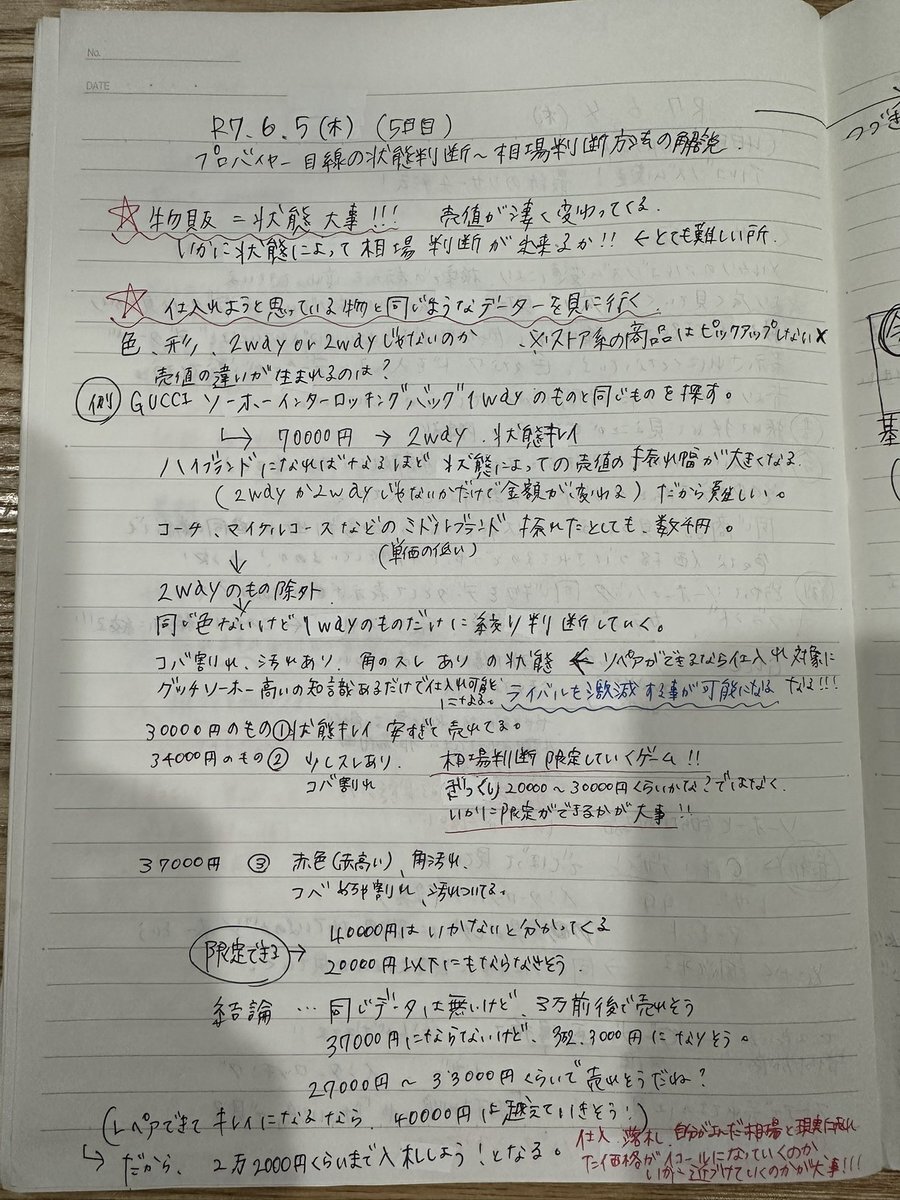 No.
DATE
R7.6.5(木) (5日目)
プロバイヤー目線の状態判断~相場判断方法の解説
☆物販=状態大事!!! 売値が凄く変わってくる.
いかに状態によって相場判断が出来るか!! ←とても難しい所.
☆仕入れようと思っている物と同じようなデーターを見に行く
色、形、2way or 2wayじゃないのか ※ストア系の商品はピックアップしない×
売値の違いが生まれるのは?
例 GUCCI ソーホーインターロッキングバッグ1wayのものと同じものを探す。
↳ 70000円 → 2way.状態キレイ
ハイブランドになればなるほど状態によっての売値の振れ幅が大きくなる.
(2wayか2wayじゃないかだけで金額が変わる) だから難しい。
コーチ、マイケルコースなどのミドルブランド 振れたとしても、数千円。
(単価の低い)
↓
2wayのもの除外
同じ色ないけど1wayのものだけに絞り判断していく。
コバ割れ、汚れあり、角のスレありの状態 ← リペアができるなら仕入れ対象に
なる!!!
グッチソーホー高いの知識あるだけで仕入れ可能
になる。 ライバルも激減する事が可能になる
30000円のもの① 状態キレイ 安すぎて売れてる。
34000円のもの② 少しスレあり. 相場判断 限定していくゲーム!!
コバ割れ ざっくり20000~30000円くらいかな?ではなく.
いかに限定ができるかが大事!!
37000円 ③ 赤色(赤高い)、角汚れ
コバめちゃ割れ、汚れついてる。
限定できる → 40000円はいかないと分かってくる
20000円以下にもならなさそう.
結論 … 同じデータは無いけど、3万前後で売れそう
37000円にならないけど、3000円になりそう。
27000円~33000円くらいで売れそうだね?
(リペアできてキレイになるなら、40000円は越えていきそう!)
↳ だから、2万2000円くらいまで入札しよう!となる。
仕入、落札、自分がよんだ相場と現実に売れ
た価格がイコールになっていくのか
いかに近づけていくのかが大事!!!
つづき
基